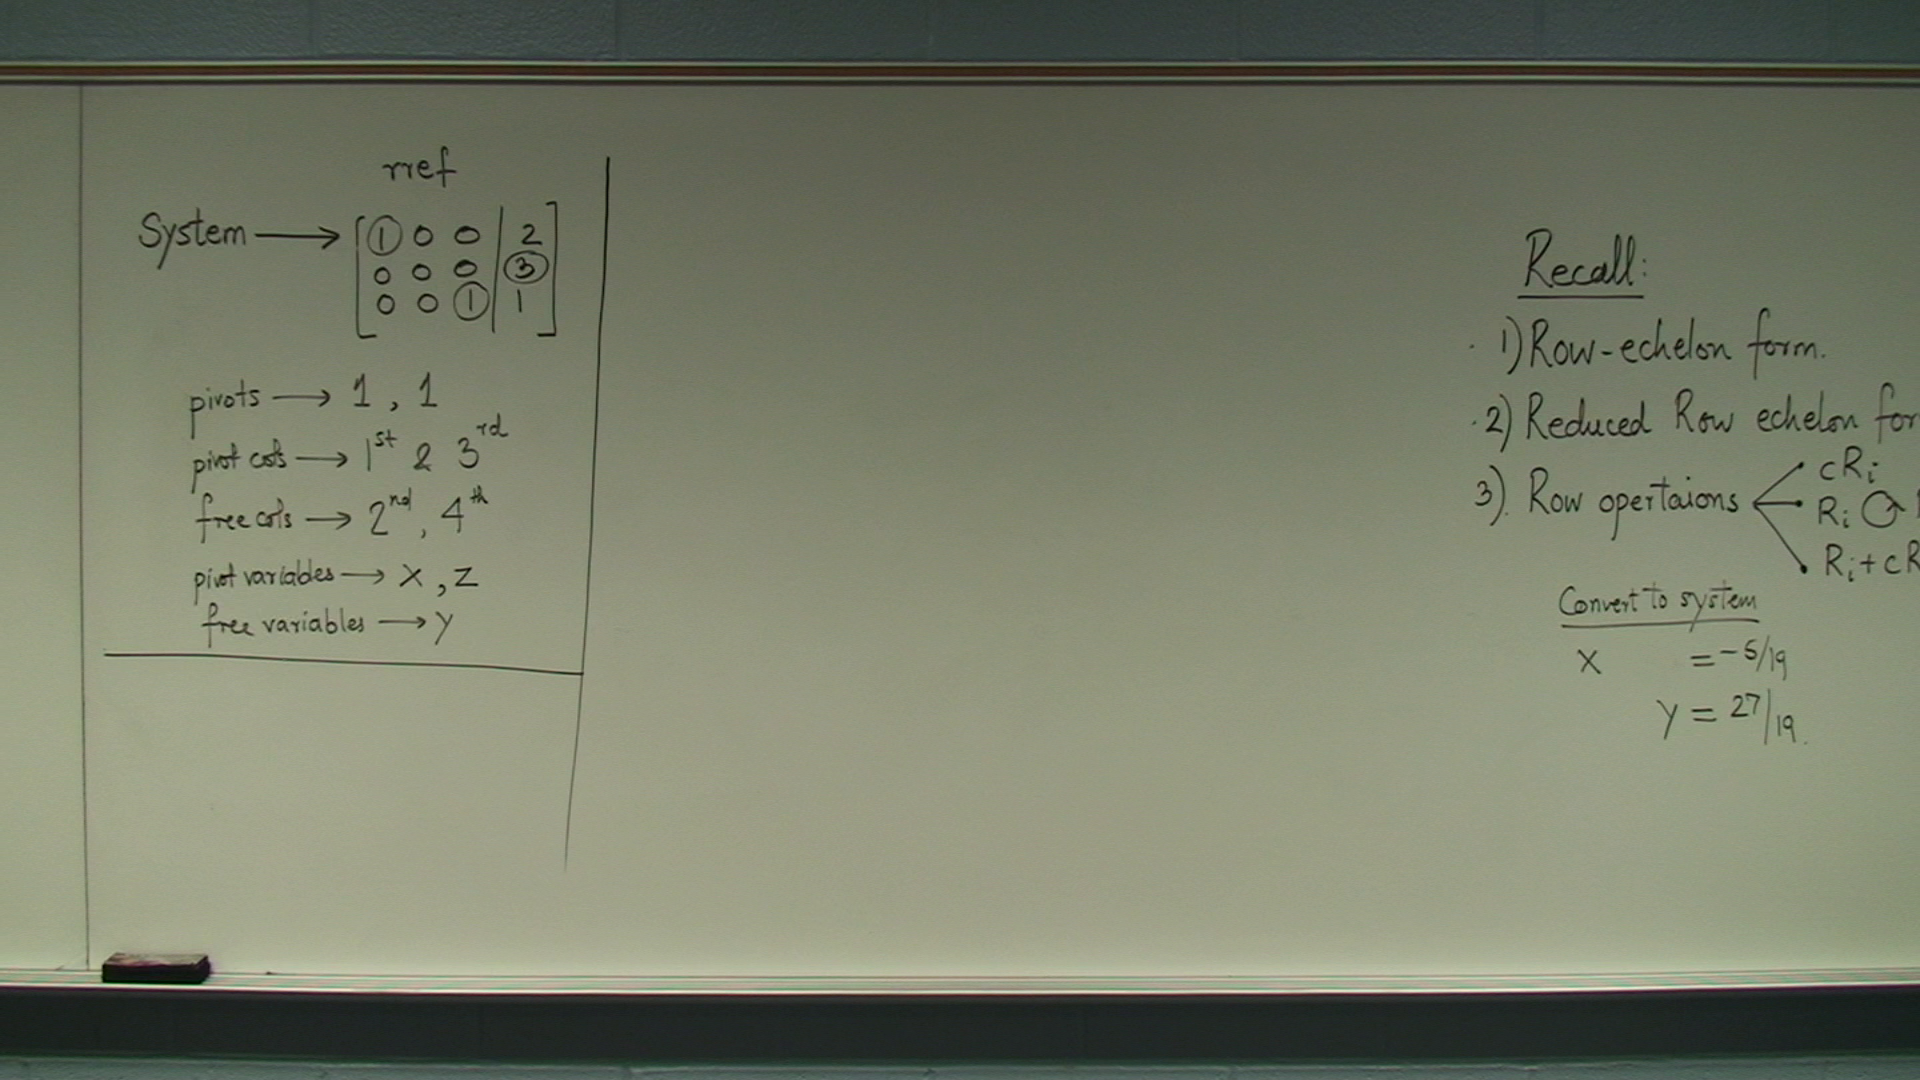 rref
System → [ 1 0 0 | 2 ]
0 0 0 | 3
0 0 1 | 1
pivots → 1 , 1
pivot cols → 1st & 3rd
free cols → 2nd , 4th
pivot variables → x , z
free variables → y
Recall:
1) Row-echelon form.
2) Reduced Row echelon for
3). Row opertaions
cRi
Ri
Ri + cR
Convert to system
x = -5/19
y = 27/19.